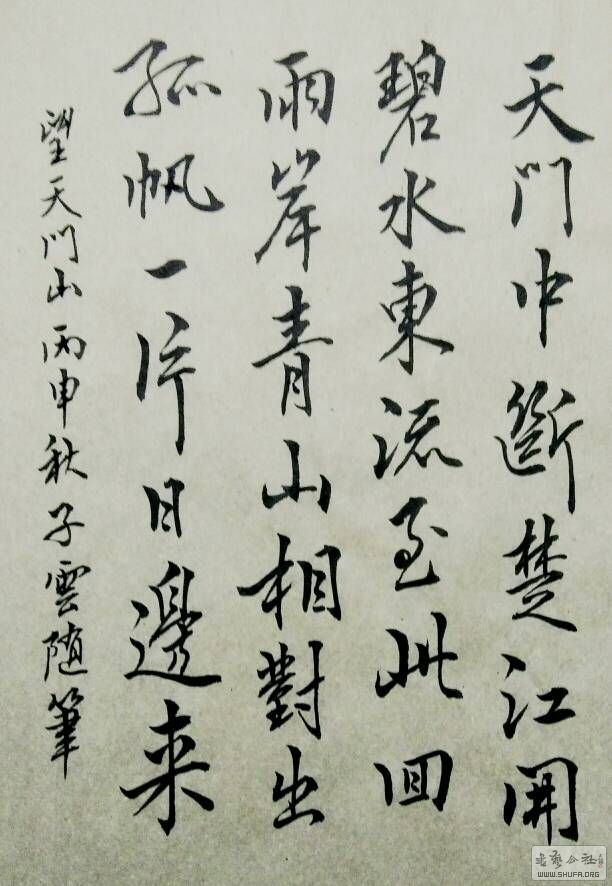 天門中斷楚江開
碧水東流至此回
兩岸青山相對出
孤帆一片日邊来
望天門山丙申秋子雲随筆
WWW.SHUFA.ORG